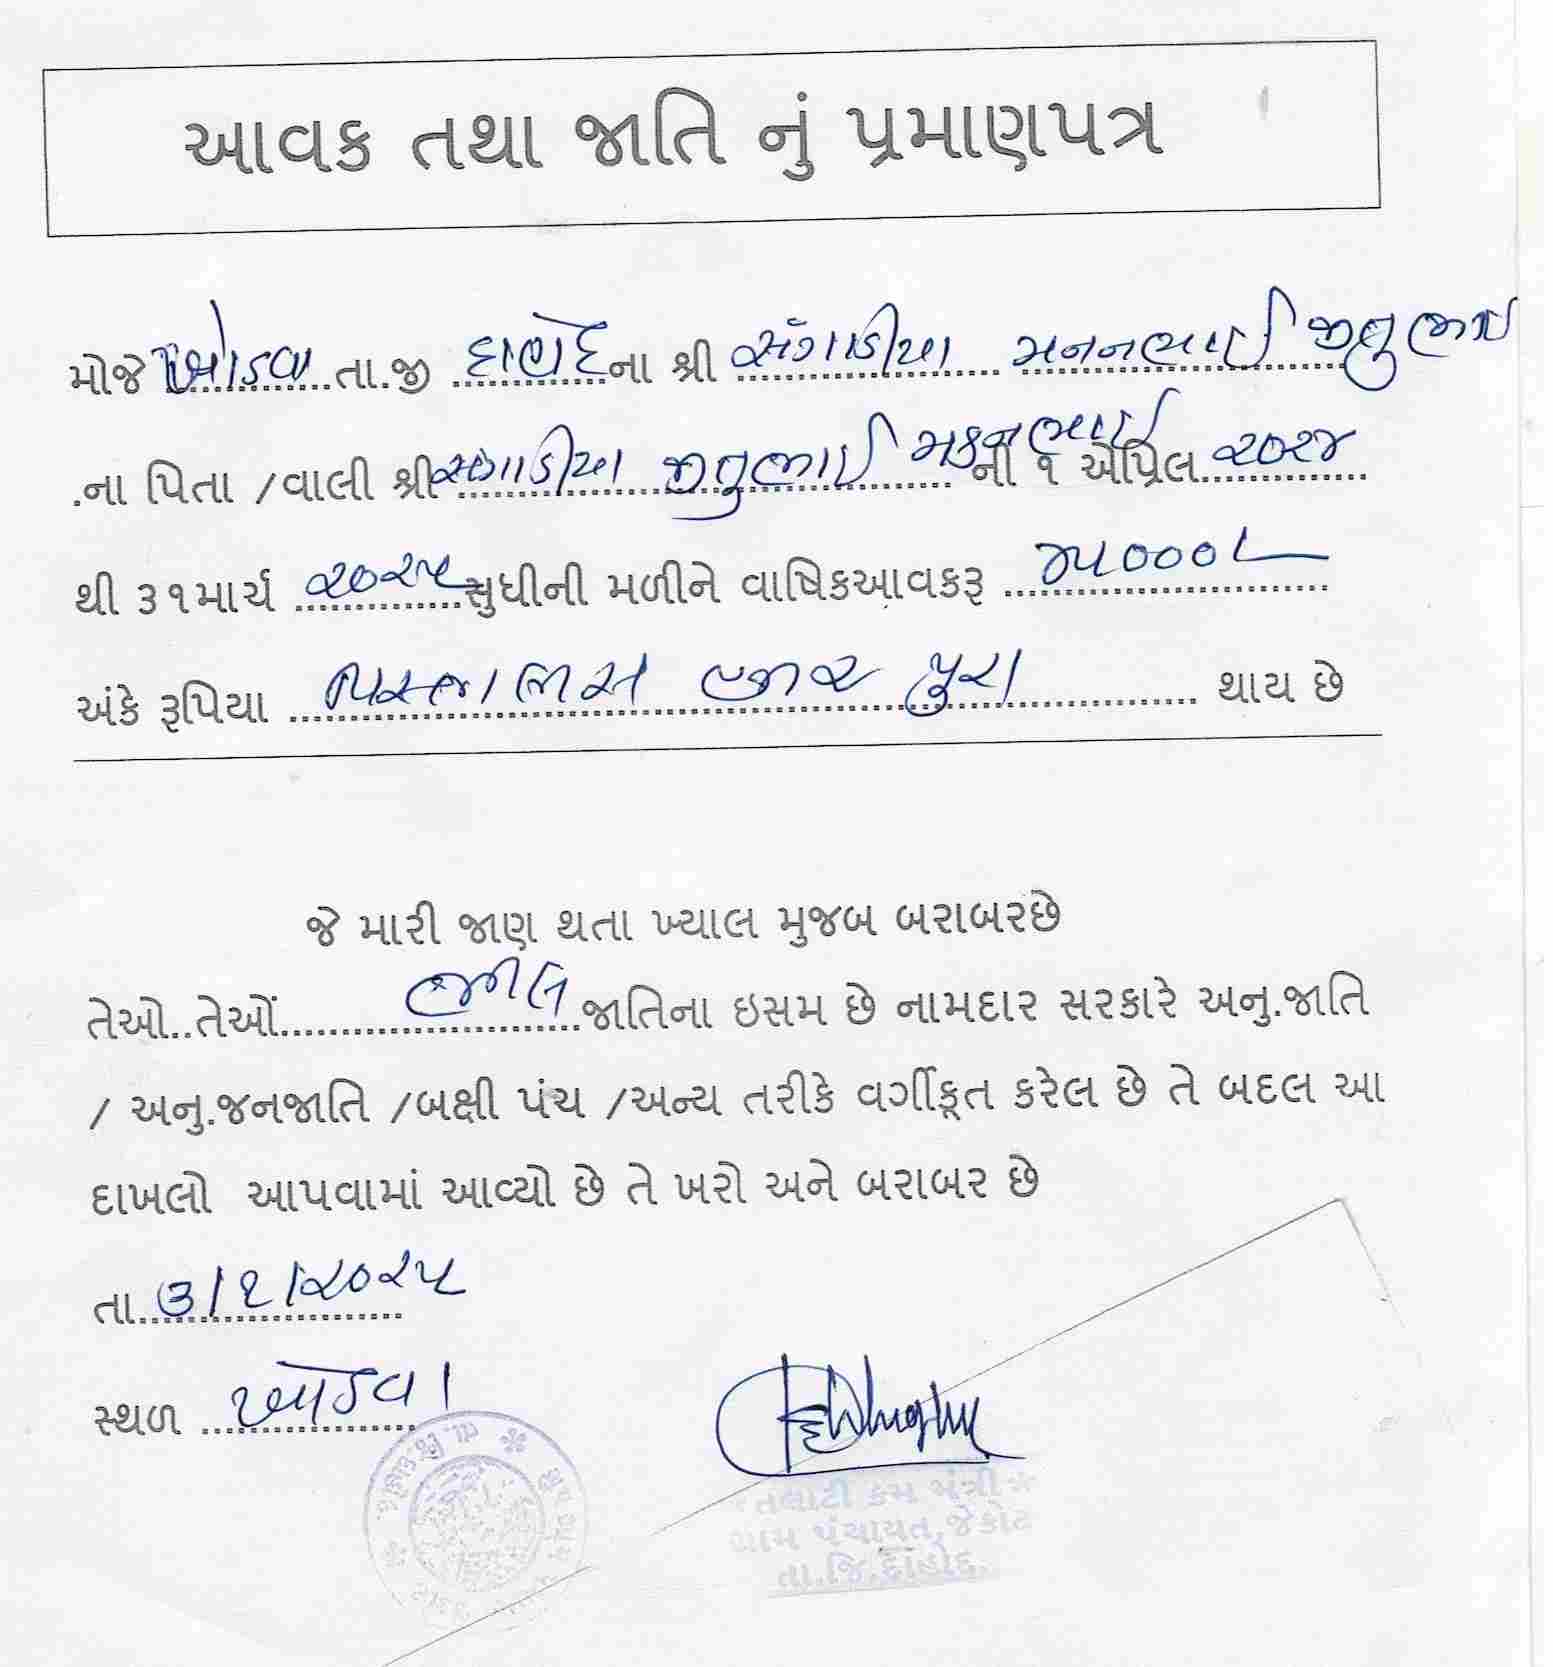 આવક તથા જાતિ નું પ્રમાણપત્ર
મોજે ખોડવા તા.જી દાહોદ ના શ્રી સંગાડીયા મનનભાઈ જીતુભાઈ
.ના પિતા /વાલી શ્રી સંગાડીયા જીતુભાઈ મકનભાઈ ની ૧ એપ્રિલ ૨૦૨૪
થી ૩૧માર્ચ ૨૦૨૫ સુધીની મળીને વાષિકઆવકરૂ ૪૫૦૦૦/-
અંકે રૂપિયા હજાર પુરા થાય છે
જે મારી જાણ થતા ખ્યાલ મુજબ બરાબરછે
તેઓ..તેઓં ભીલ જાતિના ઇસમ છે નામદાર સરકારે અનુ.જાતિ
/ અનુ.જનજાતિ /બક્ષી પંચ /અન્ય તરીકે વર્ગીકૃત કરેલ છે તે બદલ આ
દાખલો આપવામાં આવ્યો છે તે ખરો અને બરાબર છે
તા ૩/૧/૨૦૨૫
સ્થળ ખોડવા
તલાટી કમ મંત્રી
ગ્રામ પંચાયત,જેકોટ
તા.જિ.દાહોદ.